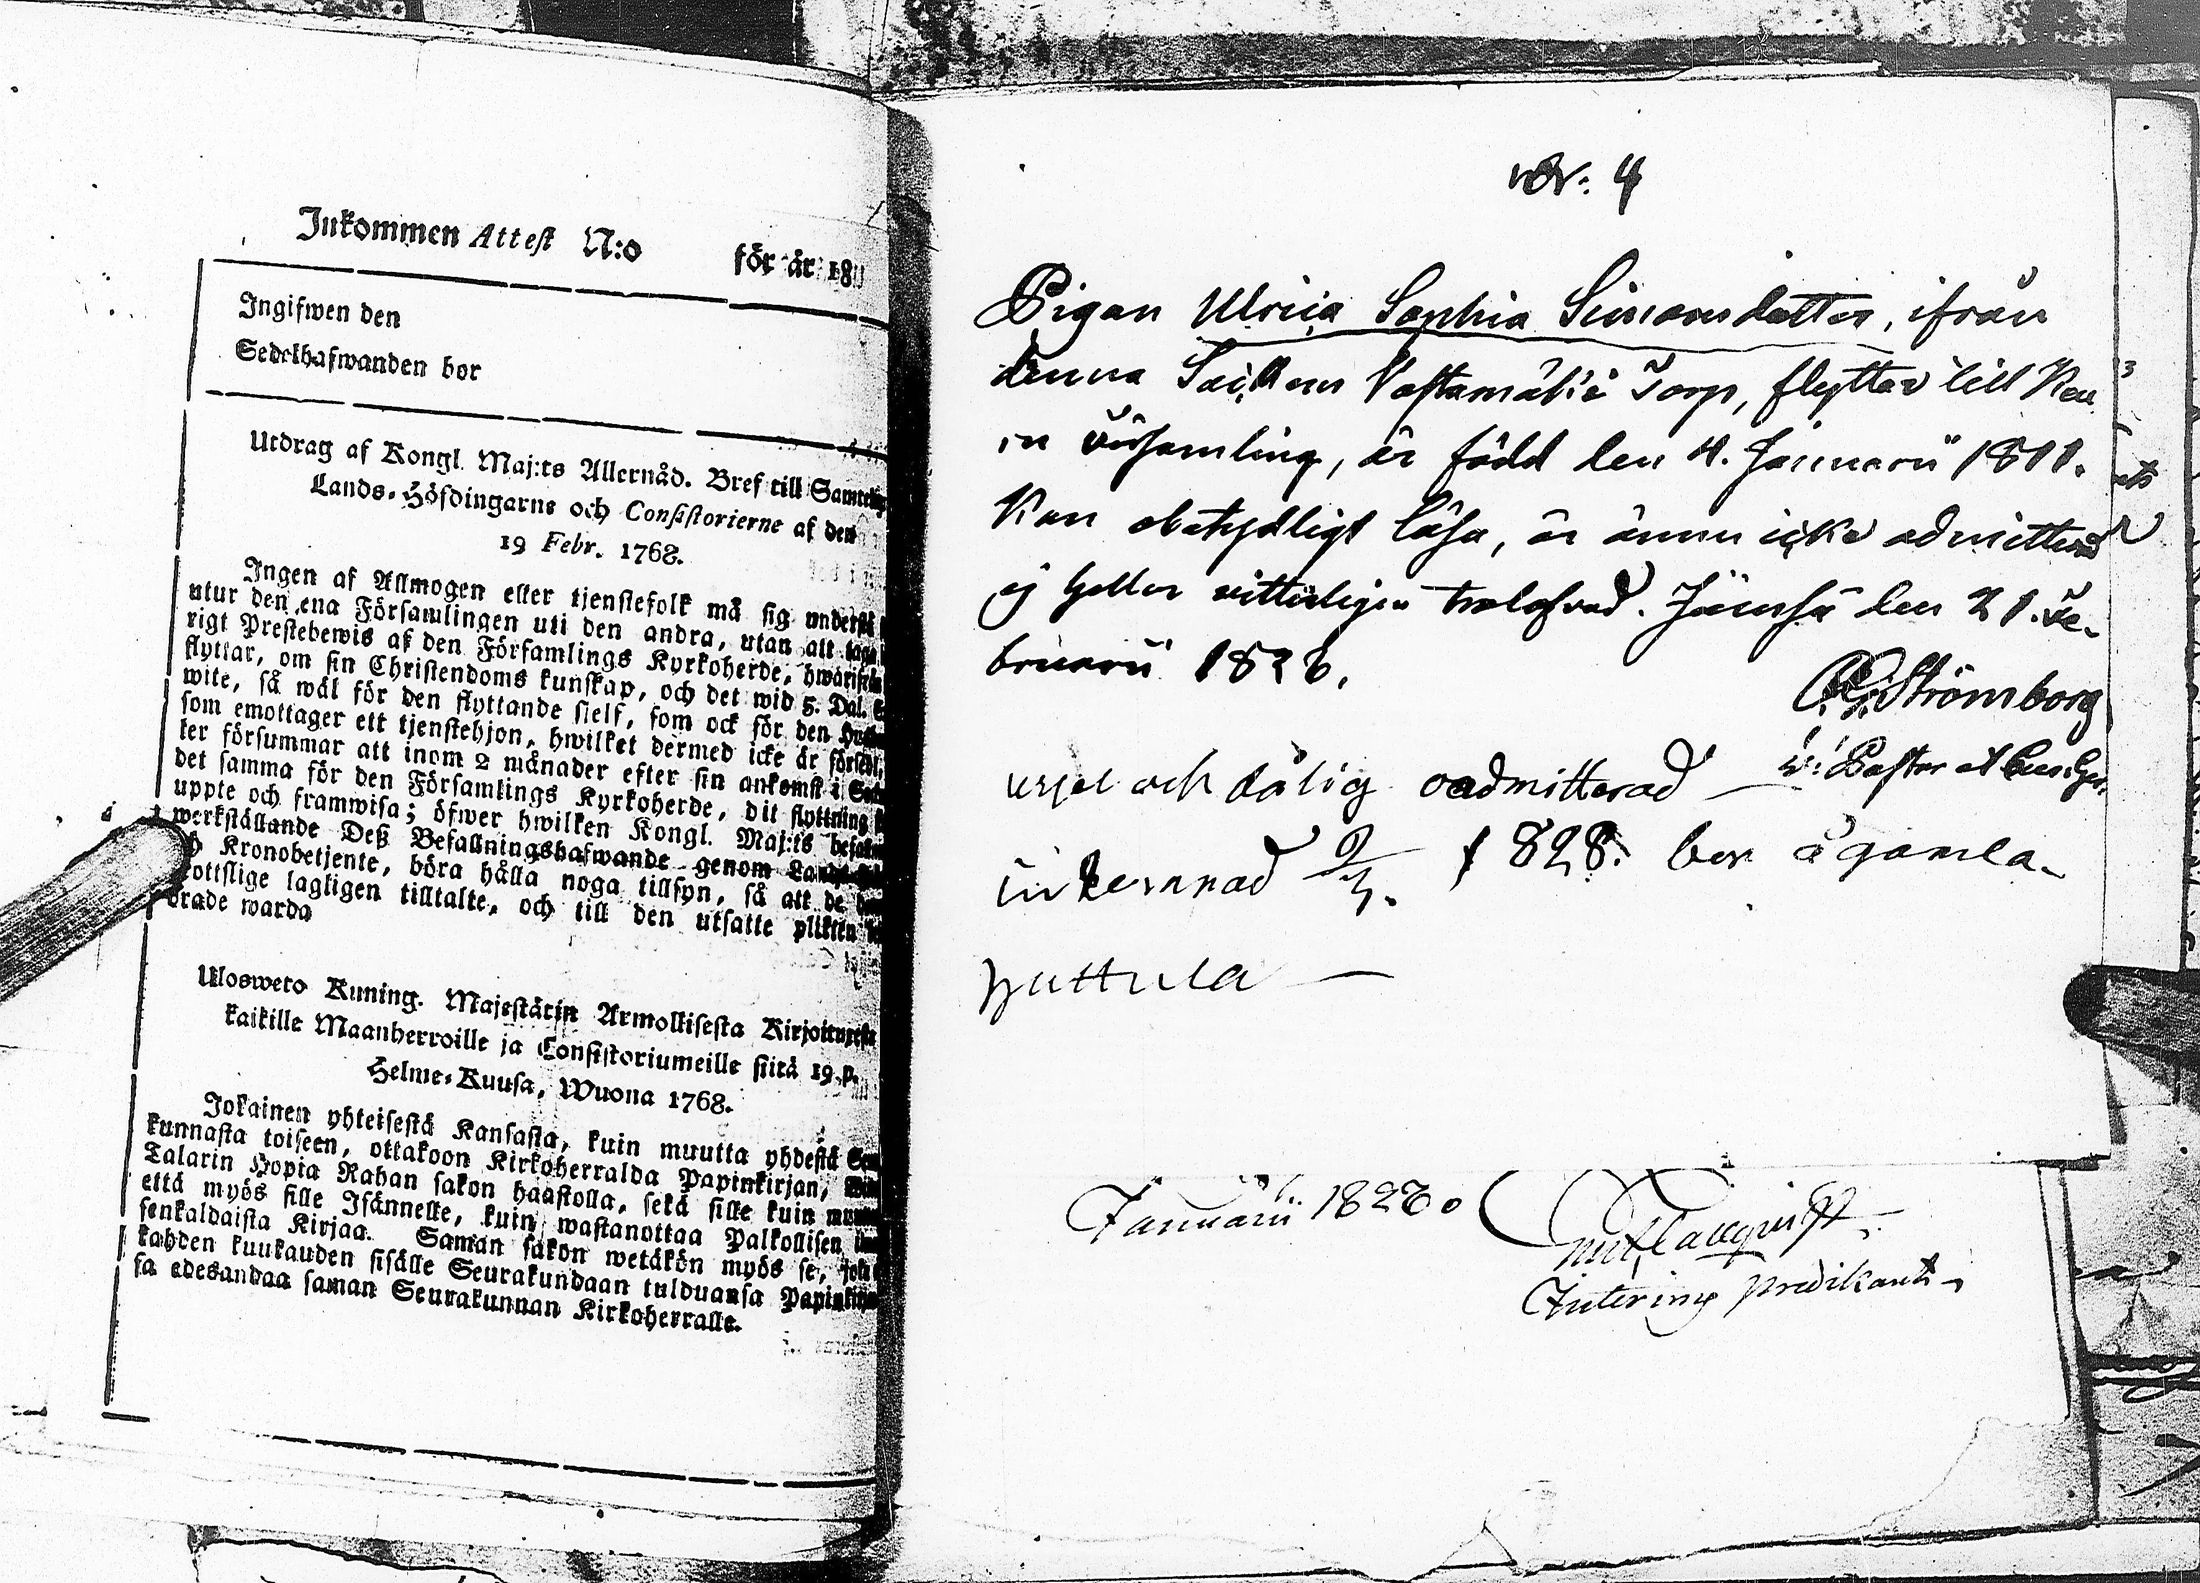 Inkommen Attest N:o för år 18
Ingifwen den
Sedelhafwanden bor
Utdrag af Kongl. Maj:ts Allernåd. Bref till Samtelig
Lands-Höfdingarne och Consistorierne af den
19 Febr. 1768.
Ingen af Allmogen eller tjenstefolk må sig understå
utur den ena Församlingen uti den andra, utan att taga
rigt Prestebewis af den Församlings Kyrkoherde, hwarifrån
flyttar, om sin Christendoms kunskap, och det wid 5. Dal.
wite, så wäl för den flyttande sielf, som ock för den
som emottager ett tjenstehjon, hwilket dermed icke är försedt,
ker försummar att inom 2 månader efter sin ankomst i
det samma för den Församlings Kyrkoherde, dit flyttning
uppte och framwisa; öfwer hwilken Kongl. Maj:ts befall
werkställande Deß Befallningshafwande genom
Kronobetjente, böra hålla noga tillsyn, så att de
rottslige lagligen tilltalte, och till den utsatte plikten
brade warda
Uloswето Kuning. Majestätin Armollisesta Kirjoituxesta
kaikille Maanherroille ja Consistoriumeille siitä 19.p.
Helme-Kuusa, Wuona 1768.
Jokainen yhteisestä Kansasta, kuin muutta yhdestä Seu
kunnasta toiseen, ottakoon Kirkoherralda Papinkirjan,
Talarin Hopia Rahan sakon haastolla, sekä sille kuin muutta
että myös sille Isännelle, kuin wastanottaa Palkollisen
senkaldaista Kirjaa. Saman sakon wetäkön myös se, joka
kahden kuukauden sisälle Seurakundaan tulduansa Papinkirja
sa edesandaa saman Seurakunnan Kirkoherralle.
Nr. 4
Pigan Ulrica Sophia Simonsdotter, ifrån
denna Socken Torp, flyttar till Keu
ru församling, är född den 4. Januarii 1811.
Kan obetydligt läsa, är ännu icke admitterad
ej heller vitterligen trolofvad. Jämsä den 21. Fe-
bruarii 1828.
Strömborg
V: Pastor
usel och dålig oadmitterad
inkomnad 1828. bor å gamla
Huttula
Januarii 1828.
Interims predikant